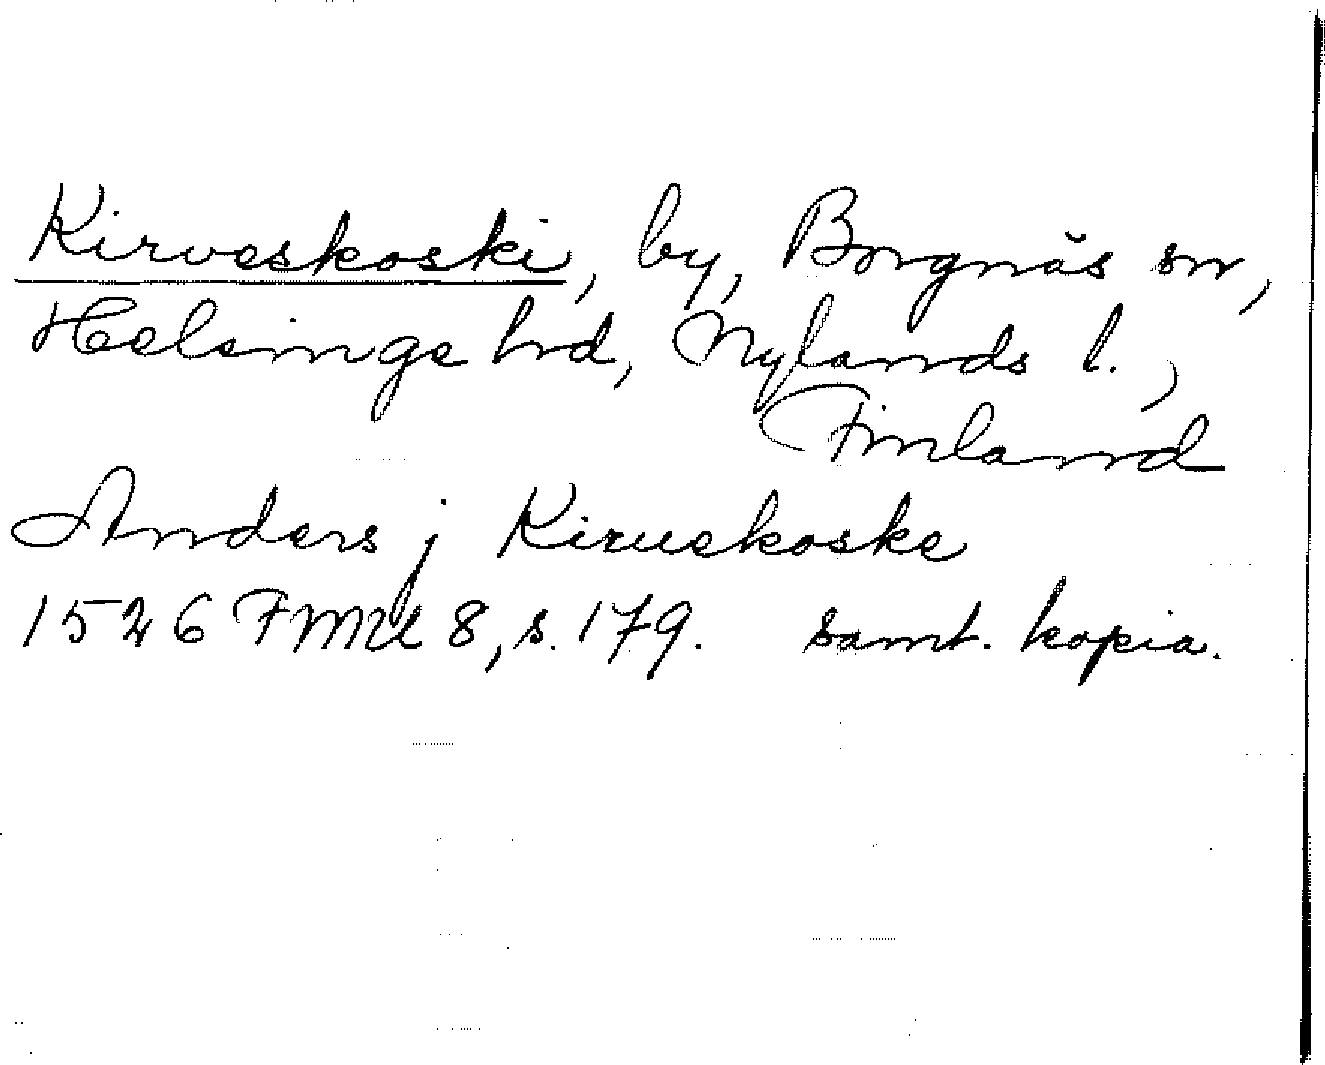 Kirveskoski, by, Borgnäs sn,
Helsinge hd, Nylands l.,
Finland
Anders j Kirueskoske
1526 FMU 8, s. 179. samt. kopia.